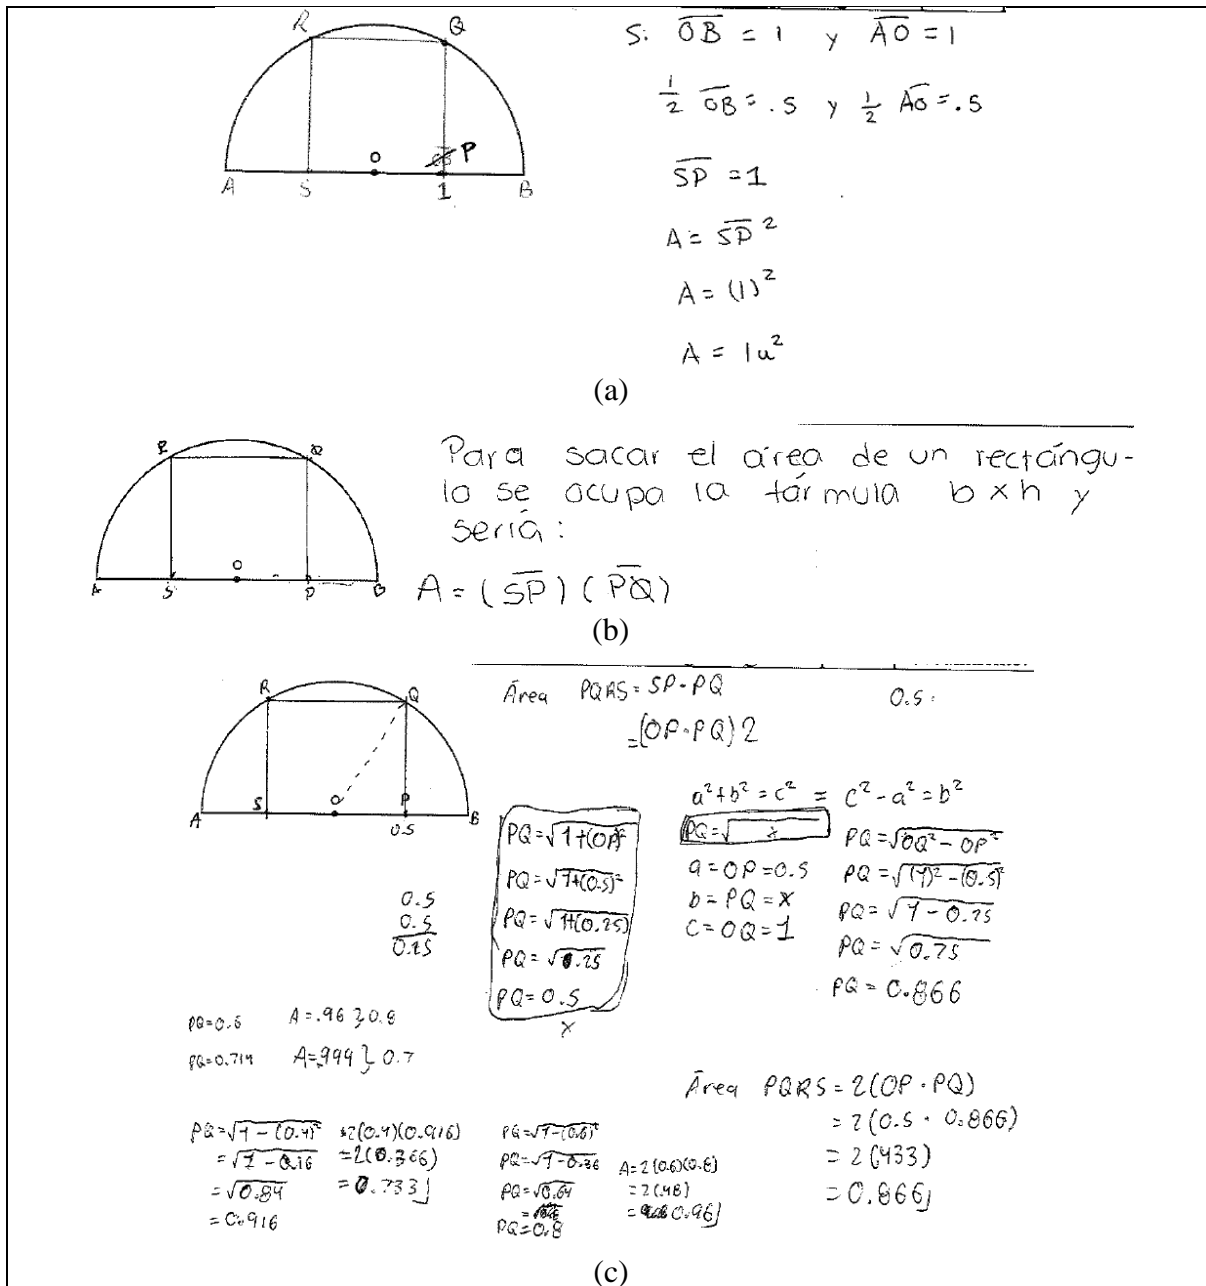 R Q
O P
A S 1 B
Si OB = 1 y AO = 1
1/2 OB = .5 y 1/2 AO = .5
SP = 1
A = SP²
A = (1)²
A = 1u²
(a)
R Q
O
A S P B
Para sacar el área de un rectángu-
lo se ocupa la fórmula b x h y
sería:
A = (SP) (PQ)
(b)
R Q
O P
A S 0.5 B
Área PQRS = SP · PQ
= (OP · PQ) 2
0.5
0.5
0.5
0.25
PQ = √1+(OP)²
PQ = √1+(0.5)²
PQ = √1+(0.25)
PQ = √0.25
PQ = 0.5
x
a² + b² = c² = c² - a² = b²
PQ = √ x
a = OP = 0.5
b = PQ = x
c = OQ = 1
PQ = √OQ² - OP²
PQ = √(1)² - (0.5)²
PQ = √1 - 0.25
PQ = √0.75
PQ = 0.866
PQ = 0.6 A = .96 } 0.8
PQ = 0.714 A = .999 } 0.7
PQ = √1 - (0.4)²
= √1 - 0.16
= √0.84
= 0.916
= 2(0.4)(0.916)
= 2(0.366)
= 0.733
PQ = √1 - (0.6)²
PQ = √1 - 0.36
PQ = √0.64
PQ = 0.8
A = 2(0.6)(0.8)
= 2(.48)
= 0.96
Área PQRS = 2(OP · PQ)
= 2(0.5 · 0.866)
= 2(433)
= 0.866
(c)